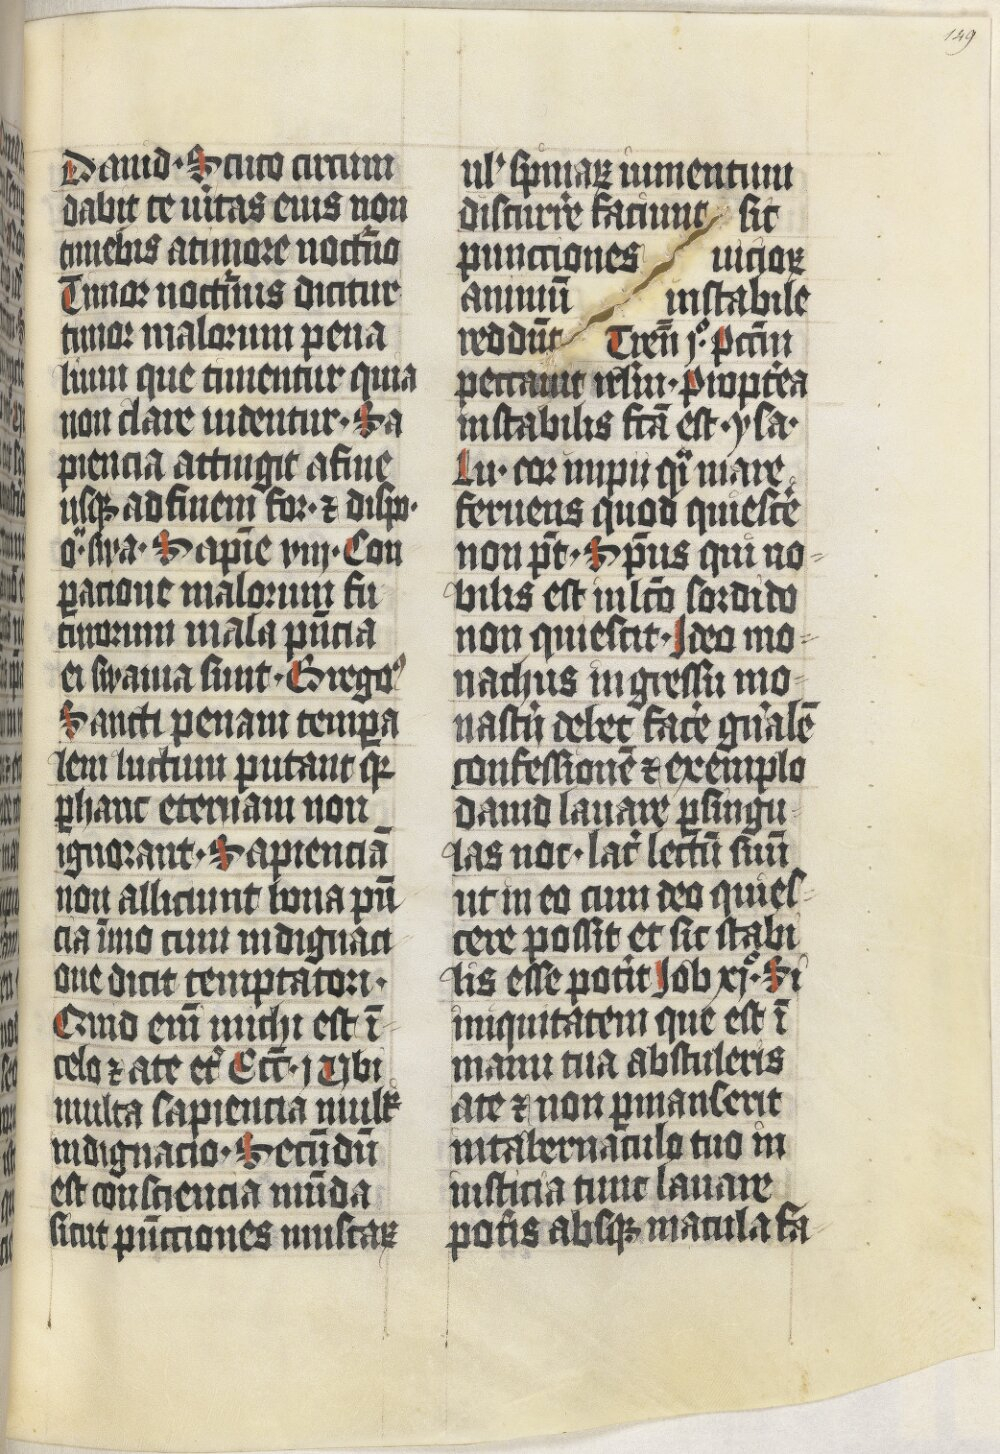 149
Dauid · Scuto circum
dabit te uitas eius non
timebis a timore noct̄no
Timor noct̄nus dicitur
timor malorum pena
lium que timentur quia
non clare uidentur · Sa
piencia attingit a fine
usqꝫ ad finem for · ⁊ dispo ·
oīa · swa · Sapīe viij · Con
paratione malorum fu
turorum mala pn̄cia
ei swauia sunt · Gregoꝰ
Sancti penam tempa
lem luctum putant qꝛ
phanc eternam non
ignorant · Sapienciā
non alliciunt bona pn̄
cia īmo cum indignaci
one dicit temptatori ·
Quid em̄ michi est ī
celo ⁊ a te etͨ Ecc̄ · j Vbi
multa sapiencia mulͭ
indignacio · Secūdū
est consciencia mūda
sicut pūctiones muscaꝝ
ul' spinaꝝ iumentum
discurre̓ faciunt sic
punctiones uicioꝝ
animū instabile
reddūt Tren̄ jͦ · Pctm̄
peccauit irlm̄ · Propte̓a
instabilis fcā est · ysa ·
Lu · cor impii qͣi mare
feruens quod quiesce̓
non pt̄ · Sp̄us qui no
bilis est in lc̄o sordido
non quiescit · Ideo mo
nachus ingressu mo
nast'ij debet face̓ gn̓alē
confessionē ⁊ exemplo
dauid lauare ꝑ singu
las noc · lac̓ lectū suū
ut in eo cum deo quies
cere possit et sic stabi
lis esse pot̓it Job xjͦ · Si
iniquitatem que est ī
manu tua abstuleris
a te ⁊ non ꝑmanserit
in tabernaculo tuo in
iusticia tunc lauare
pot̓is absqꝫ macula fa